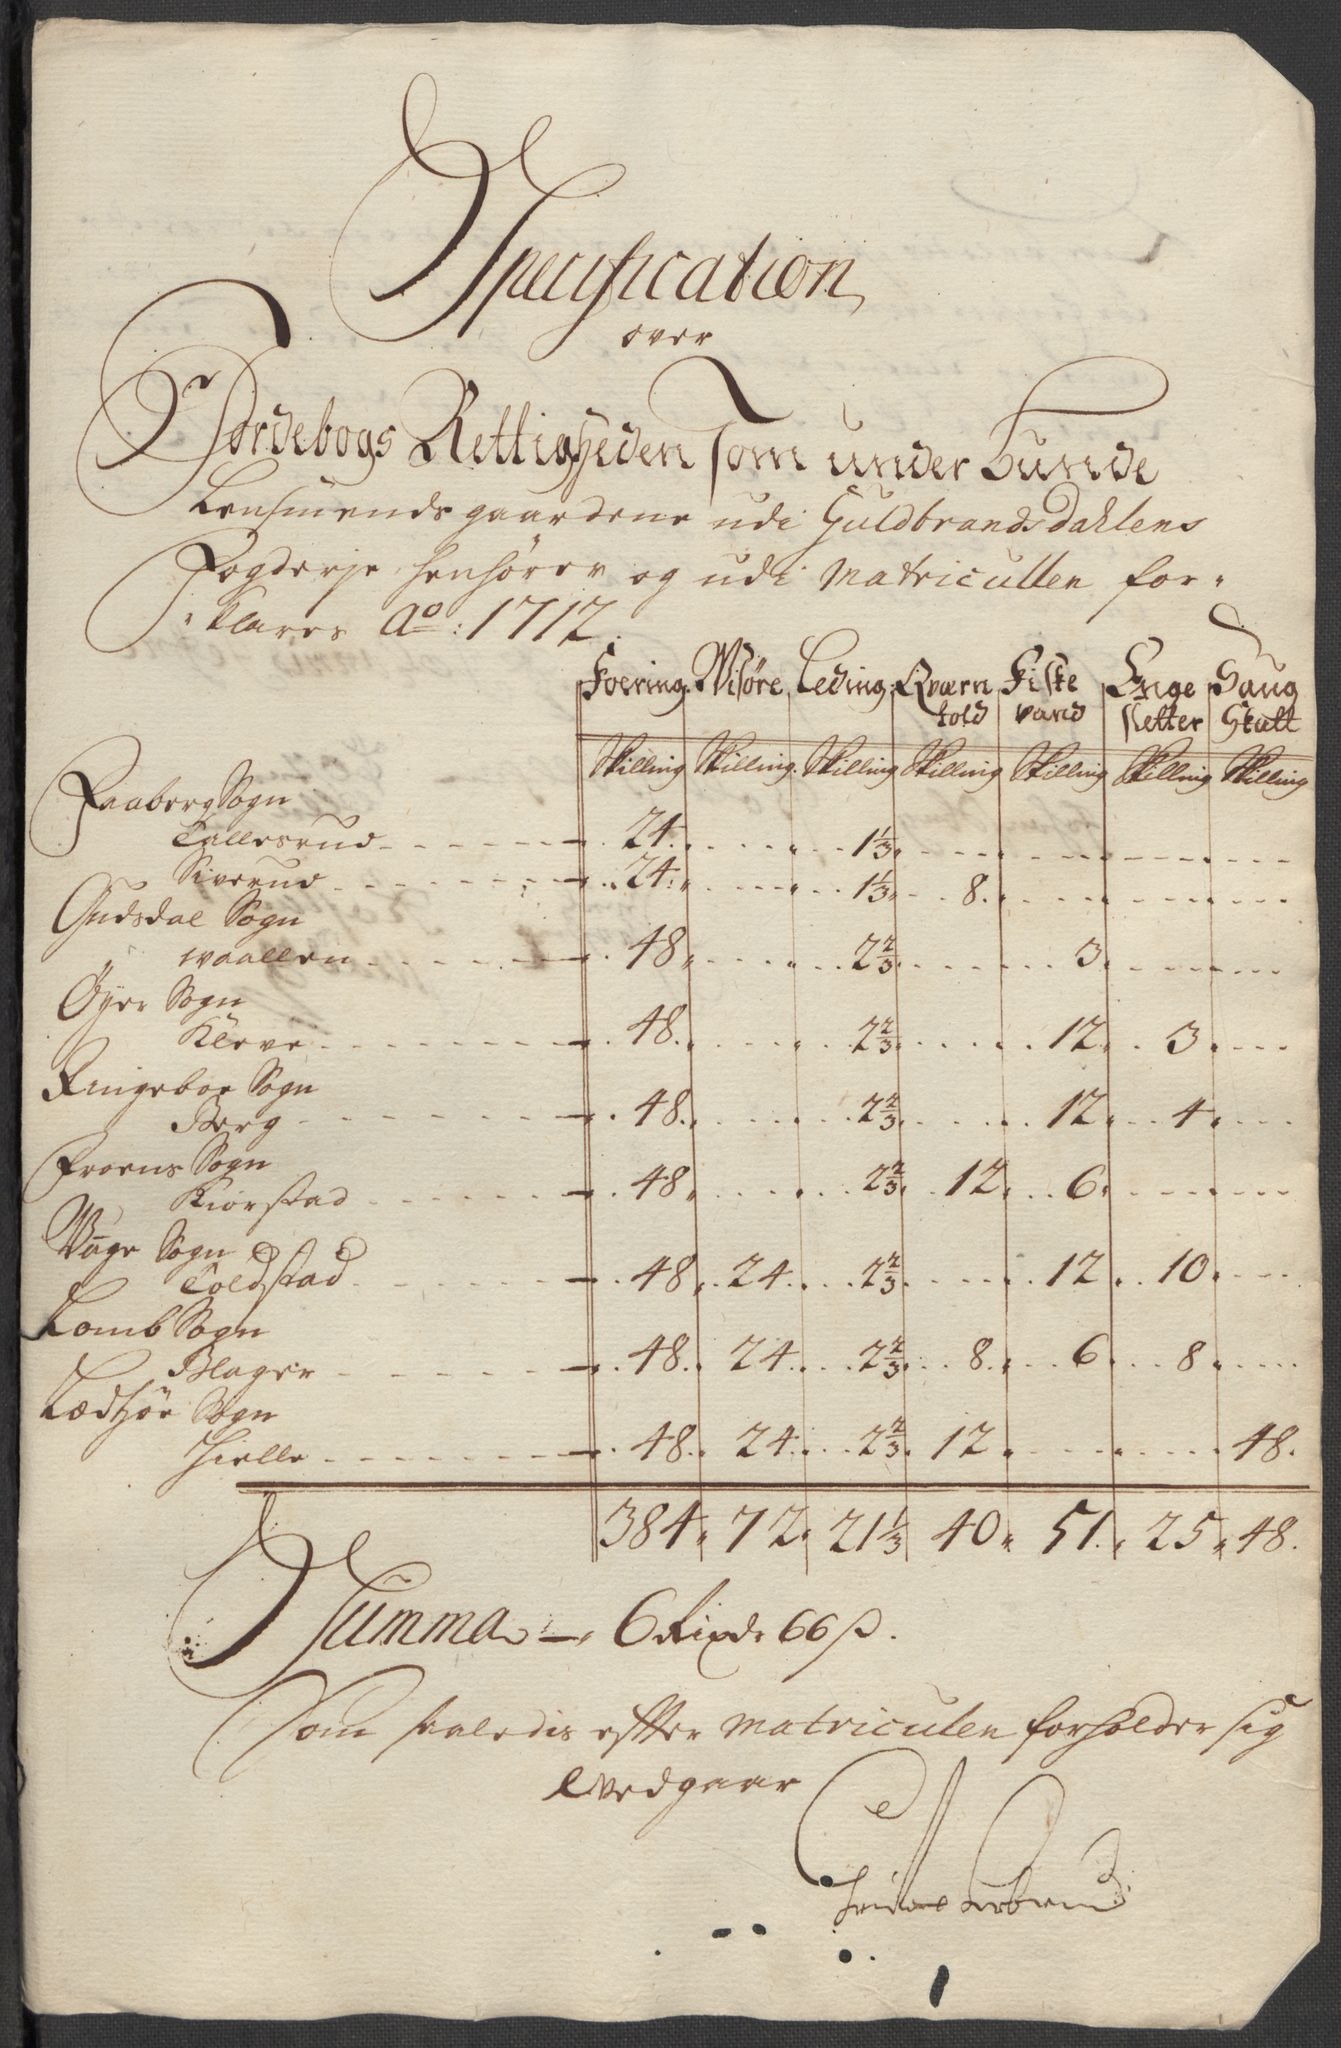 Specification
over
Jordebogs Rettigheden Som under Lunde
Lensmends gaardene udi Guldbrandsdahlens
Fogderje henhører og udi Matriculen for-
klares Ao: 1712.
Foering Wisøre Leding Qværn told Fiske vand Enge sletter Saug Skatt
Skilling Skilling Skilling Skilling Skilling Skilling Skilling
Faaberg Sogn
Tallesrud 24. 1⅓
Siverud 24. 1⅓ 8.
Gudsdal Sogn
Waallen 48 2⅔ 3
Øyer Sogn
Kleve 48. 2⅔ 12. 3
Ringeboe Sogn
Berg 48. 2⅔ 12 4
Froens Sogn
Kiorstad 48 2⅔ 12 6
Wage Sogn
Toldstad 48 24 2⅔ 12 10
Lomb Sogn
Blager 48. 24 2⅔ 8. 6 8
Lædhør Sogn
Hielle 48. 24 2⅔ 12 48.
384 72 21⅓ 40 51. 25 48.
Summa 6 Rixdr 66 ß.
Som saaledis efter Matriculen forholder sig
vedgaar